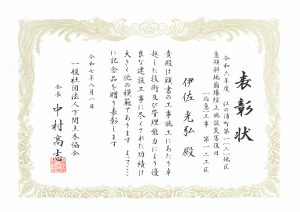 表彰状
令和六年度 江の浦町第一(三)地区
急傾斜地崩壊防止施設災害復旧
(応急)工事 第一二工区
伊佐 光弘 殿
貴殿は頭書の工事施工にあたり卓
越した技術及び管理能力により優
良な建設工事に尽くされた功績は
大きく他の模範であります よってここ
に記念品を贈り表彰します
令和七年八月一日
一般社団法人下関土木協会
会長 中村高志